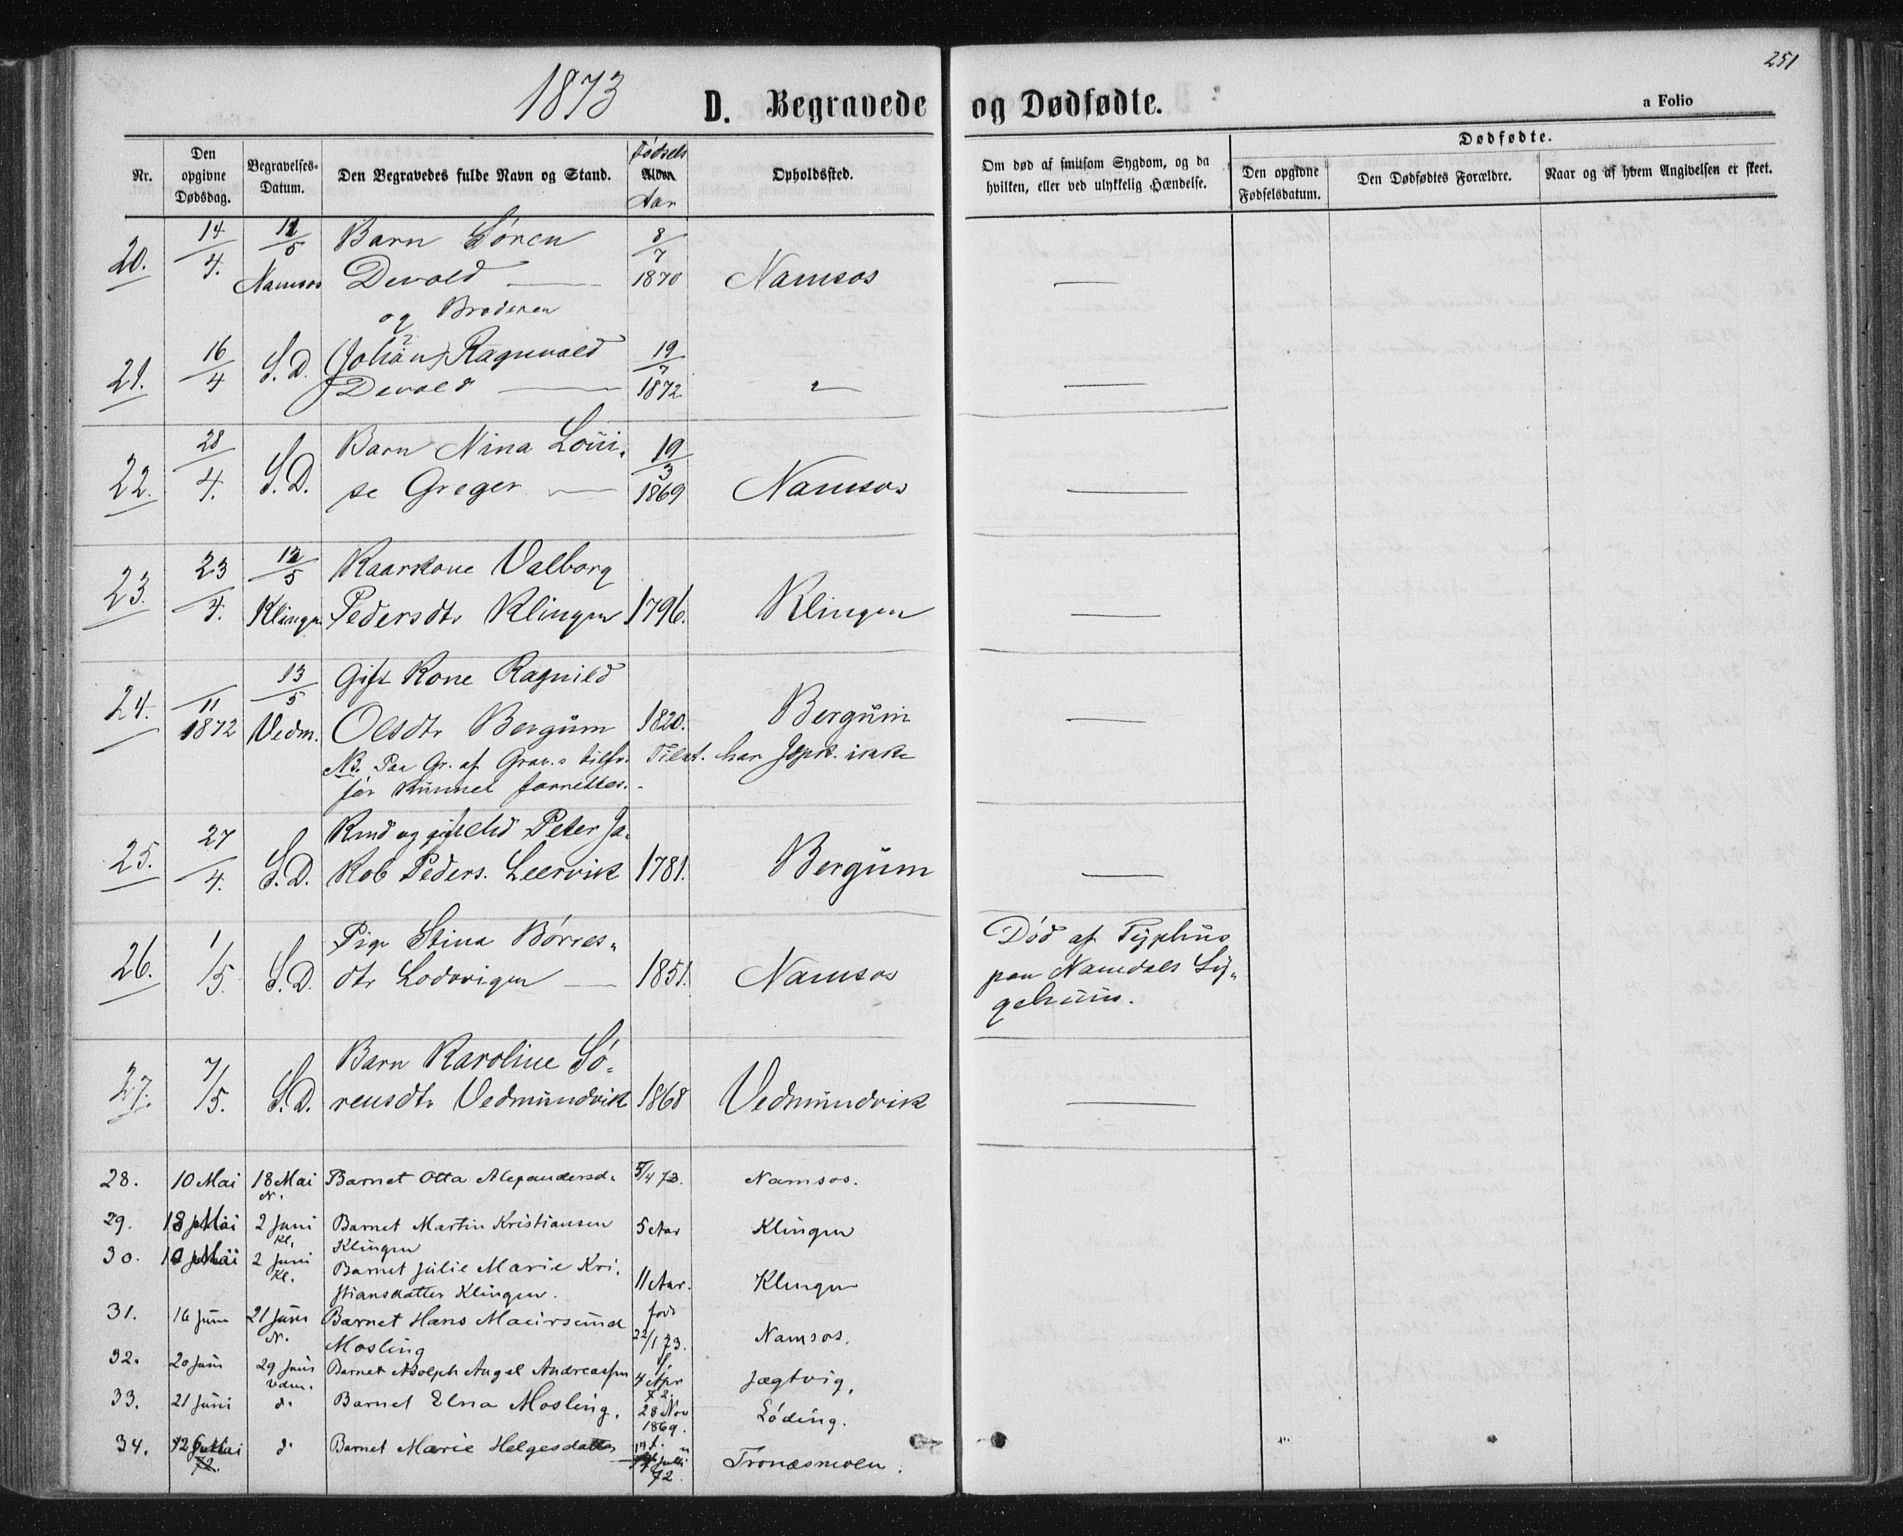 251
1873
D. Begravede og Dødfødte.
a Folio
Nr.
Den opgivne Dødsdag.
Begravelses-Datum.
Den Begravedes fulde Navn og Stand.
Fødsels Alder. Aar
Opholdssted.
Om død af smitsom Sygdom, og da hvilken, eller ved ulykkelig Hændelse.
Dødfødte.
Den opgivne Fødselsdatum.
Den Dødfødtes Forældre.
Naar og af hvem Angivelsen er skeet.
20. 14/4. 12/5 Namsos Barn Søren Devold — 8/7 1870 Namsos —
og Broderen
21. 16/4 S. D. (Johan) Ragnvald Devold — 19/7 1872 " —
22. 28/4. S. D. Barn Nina Loui-
se Greger — 19/3 1869 Namsos —
23. 23/4. 12/5 Klingen Kaarkone Valborg
Pedersdtr Klingen 1796. Klingen —
24. /11 1872 13/5 Vedm. Gift Kone Ragnild
Olsdtr Bergum 1820. Bergum —
NB. Paa Gr. af Grav.s Tilfr. Tilst. har Jspk. ikke
før kunnet forrettes.
25. 27/4. S. D. Peter Ja-
kob Peders. Leervik 1781. Bergum —
26. 1/5. S. D. Pige Stina Børres-
dtr Lodvigen — 1851. Namsos Død af Typhus
paa Namdals Sy-
gehuus.
27. 7/5. S. D. Barn Karoline Sø-
rensdtr Vedmundvik 1868 Vedmundvik —
28. 10 Mai 18 Mai N. Barnet Otta Alexandersd. 5/4 73. Namsos.
29. 18 Mai 2 Juni Kl. Barnet Martin Kristiansen
Klingen 5 Aar Klingen
30. 10 Mai 2 Juni Kl. Barnet Julie Marie Kri-
stiansdatter Klingen. 11 Aar. Klingen
31. 16 Juni 21 Juni N. Barnet Hans Maursund
Mosling født 22/1 73. Namsos.
32. 20 Juni 29 Juni Vdm. Barnet Adolph Angel Andreassen 4 Apr 72. Jægtvig.
33. 21 Juni d. Barnet Elna Mosling. 28 Nov 1869. Løding.
34. 12 d. Barnet Marie Helgesdatter Juli 72. Tronæsmoen.